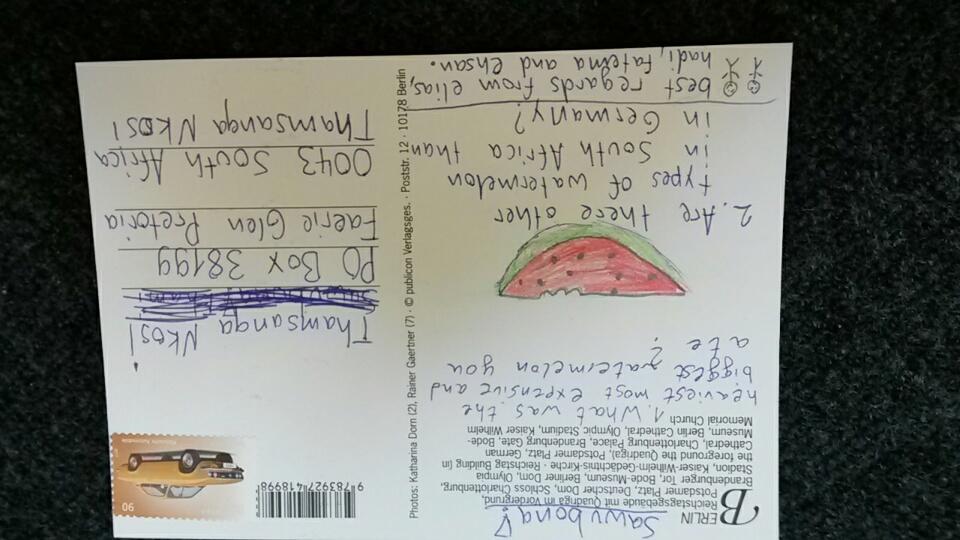 Sawubona!
BERLIN
Reichstagsgebäude mit Quadriga im Vordergrund,
Potsdamer Platz, Deutscher Dom, Schloss Charlottenburg,
Brandenburger Tor, Bode-Museum, Berliner Dom, Olympia
Stadion, Kaiser-Wilhelm-Gedächtnis-Kirche · Reichstag Building (in
the foreground the Quadriga), Potsdamer Platz, German
Cathedral, Charlottenburg Palace, Brandenburg Gate, Bode-
Museum, Berlin Cathedral, Olympic Stadium, Kaiser Wilhelm
Memorial Church
1. What was the
heaviest most expensive and
biggest watermelon you
ate?
2. Are there other
types of watermelon
in South Africa than
in Germany?
best regards from elias,
hadi, fatema and ehsan.
Photos: Katharina Dorn (2), Rainer Gaertner (7) · © publicon Verlagsges. · Poststr. 12 · 10178 Berlin
9 783927 418998
90
Thamsanqa Nkosi
PO Box 38199
Faerie Glen Pretoria
0043 South Africa
Thamsanqa Nkosi